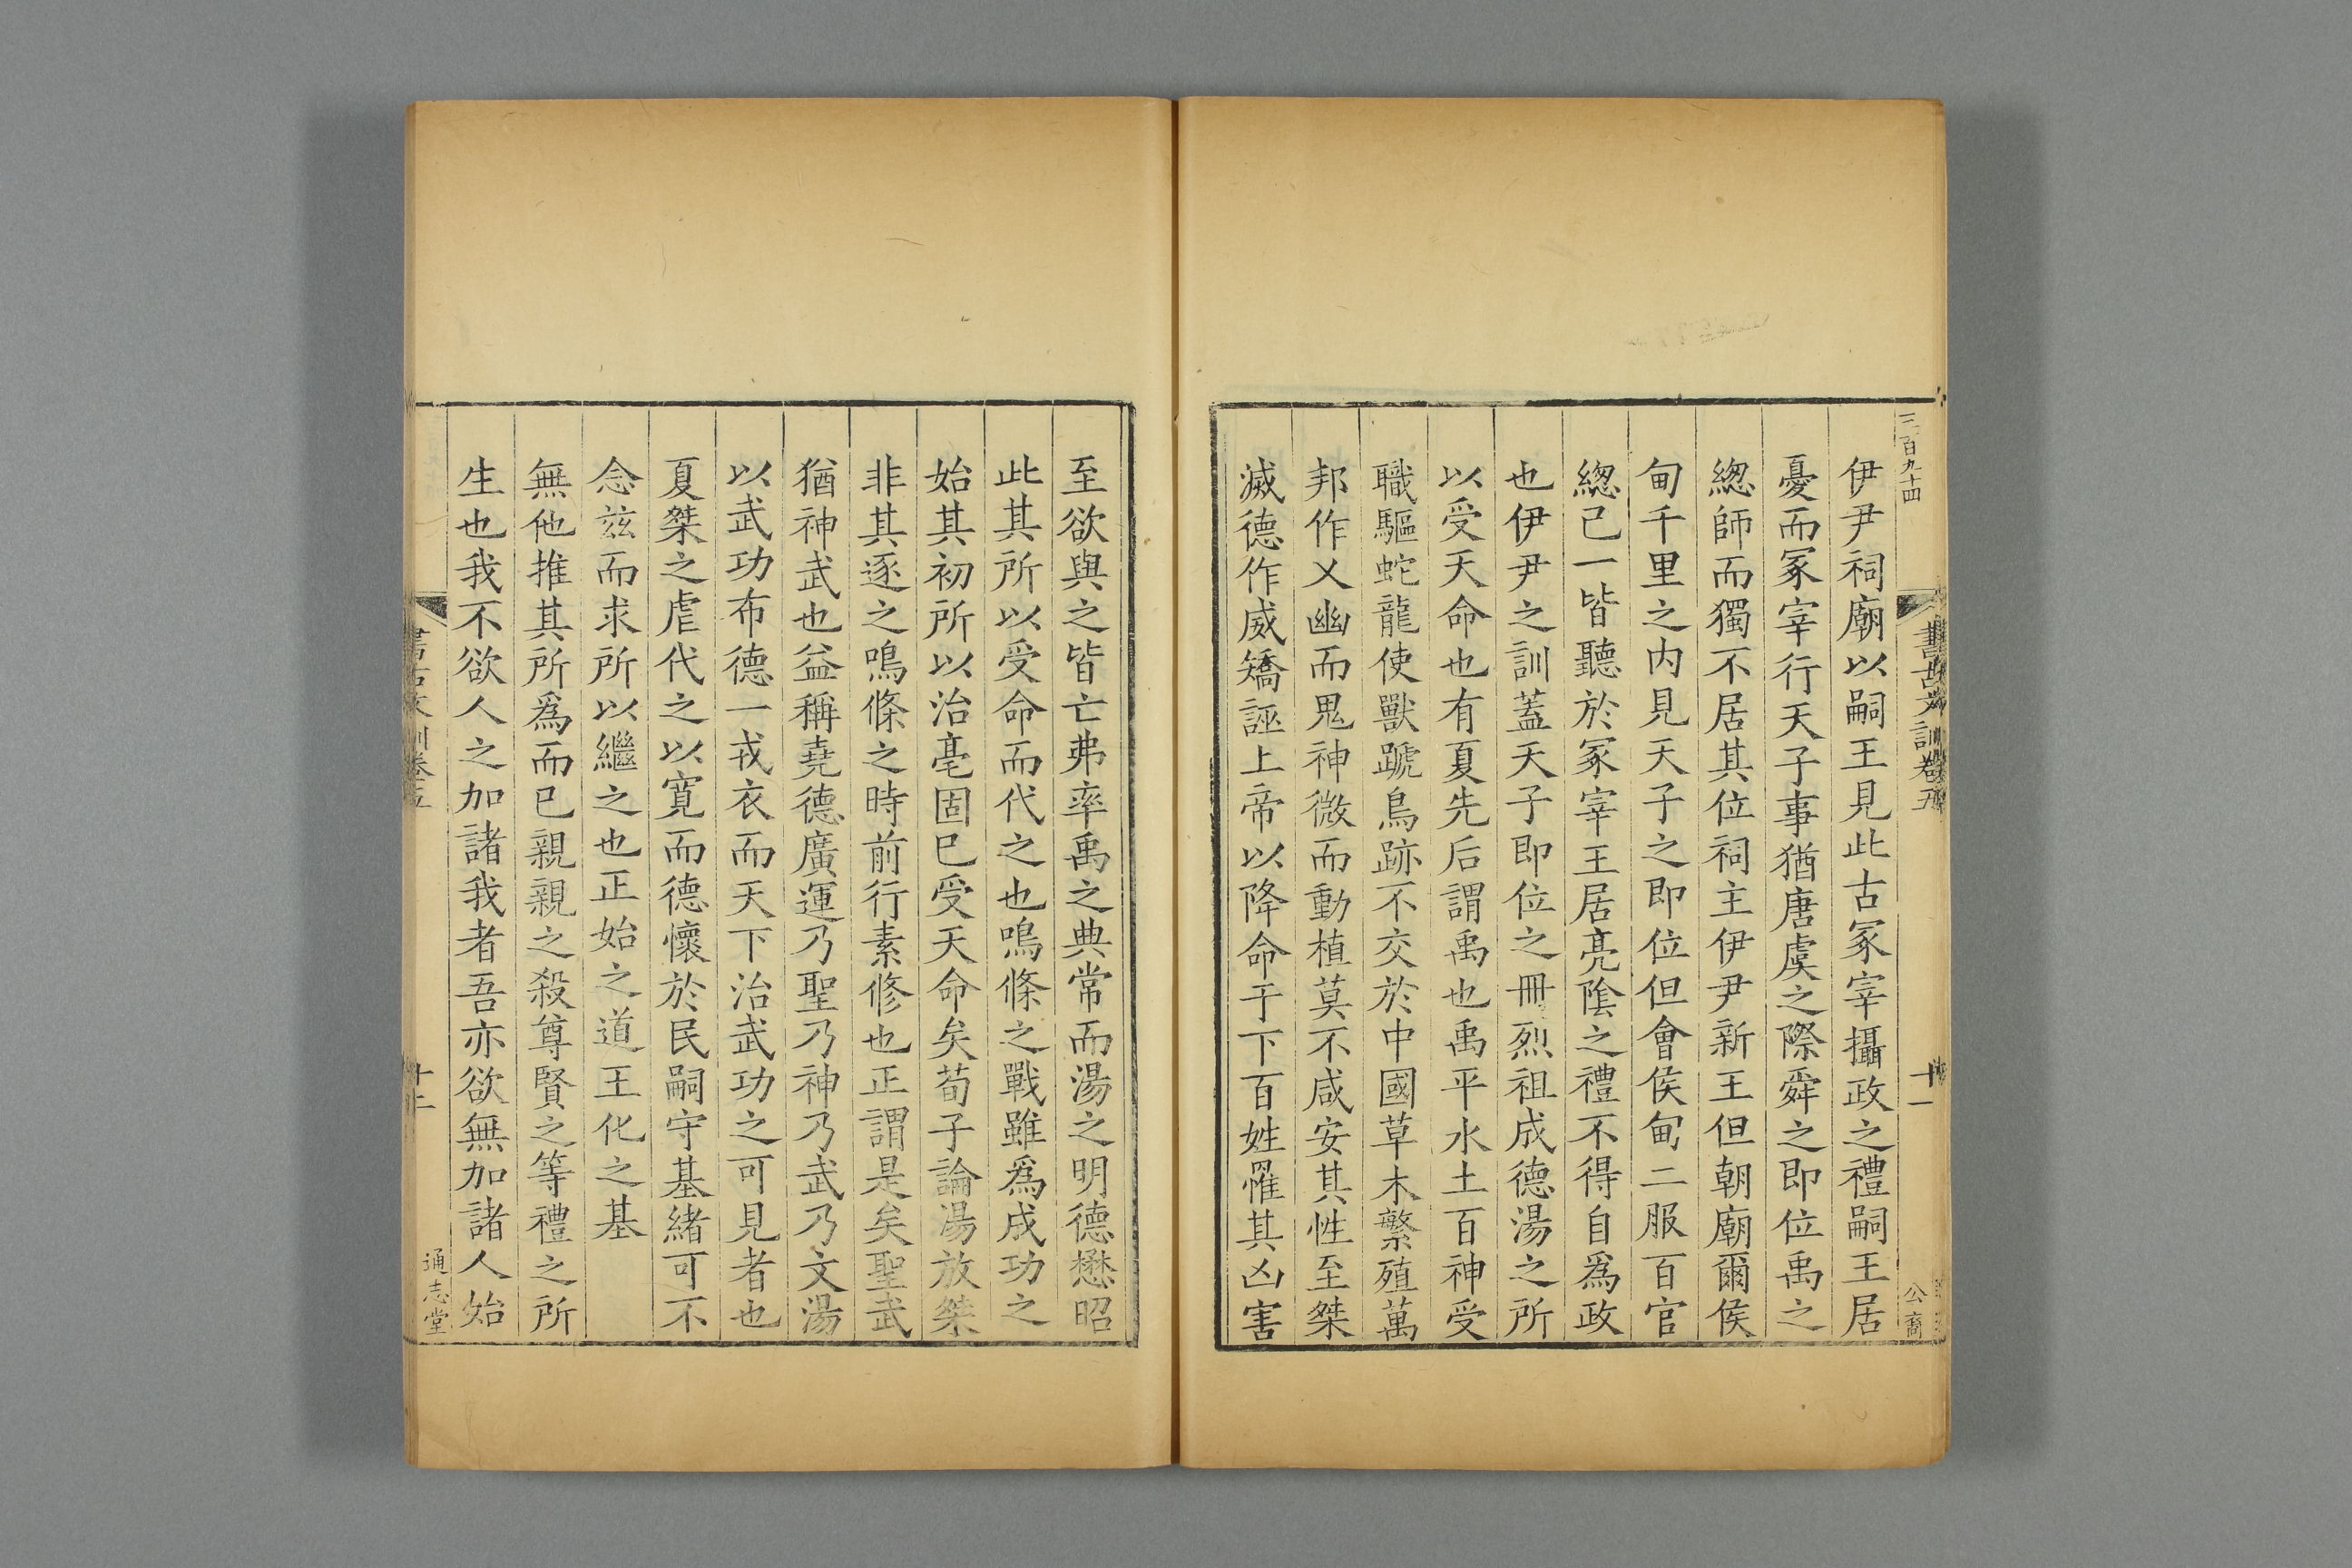 三百九十四
書古文訓卷五
十一
公裔
伊尹祠廟以嗣王見此古冢宰攝政之禮嗣王居
憂而冢宰行天子事猶唐虞之際舜之即位禹之
緫師而獨不居其位祠主伊尹新王但朝廟爾侯
甸千里之内見天子之即位但會侯甸二服百官
緫己一皆聽於冢宰王居亮陰之禮不得自爲政
也伊尹之訓蓋天子即位之冊烈祖成德湯之所
以受天命也有夏先后謂禹也禹平水土百神受
職驅蛇龍使獸蹏鳥跡不交於中國草木繁殖萬
邦作乂幽而鬼神微而動植莫不咸安其性至桀
滅德作威矯誣上帝以降命于下百姓罹其凶害
至欲與之皆亡弗率禹之典常而湯之明德懋昭
此其所以受命而代之也鳴條之戰雖爲成功之
始其初所以治亳固已受天命矣荀子論湯放桀
非其逐之鳴條之時前行素修也正謂是矣聖武
猶神武也益稱堯德廣運乃聖乃神乃武乃文湯
以武功布德一戎衣而天下治武功之可見者也
夏桀之虐代之以寬而德懷於民嗣守基緒可不
念兹而求所以繼之也正始之道王化之基
無他推其所爲而已親親之殺尊賢之等禮之所
生也我不欲人之加諸我者吾亦欲無加諸人始
書古文訓卷五
十二
通志堂